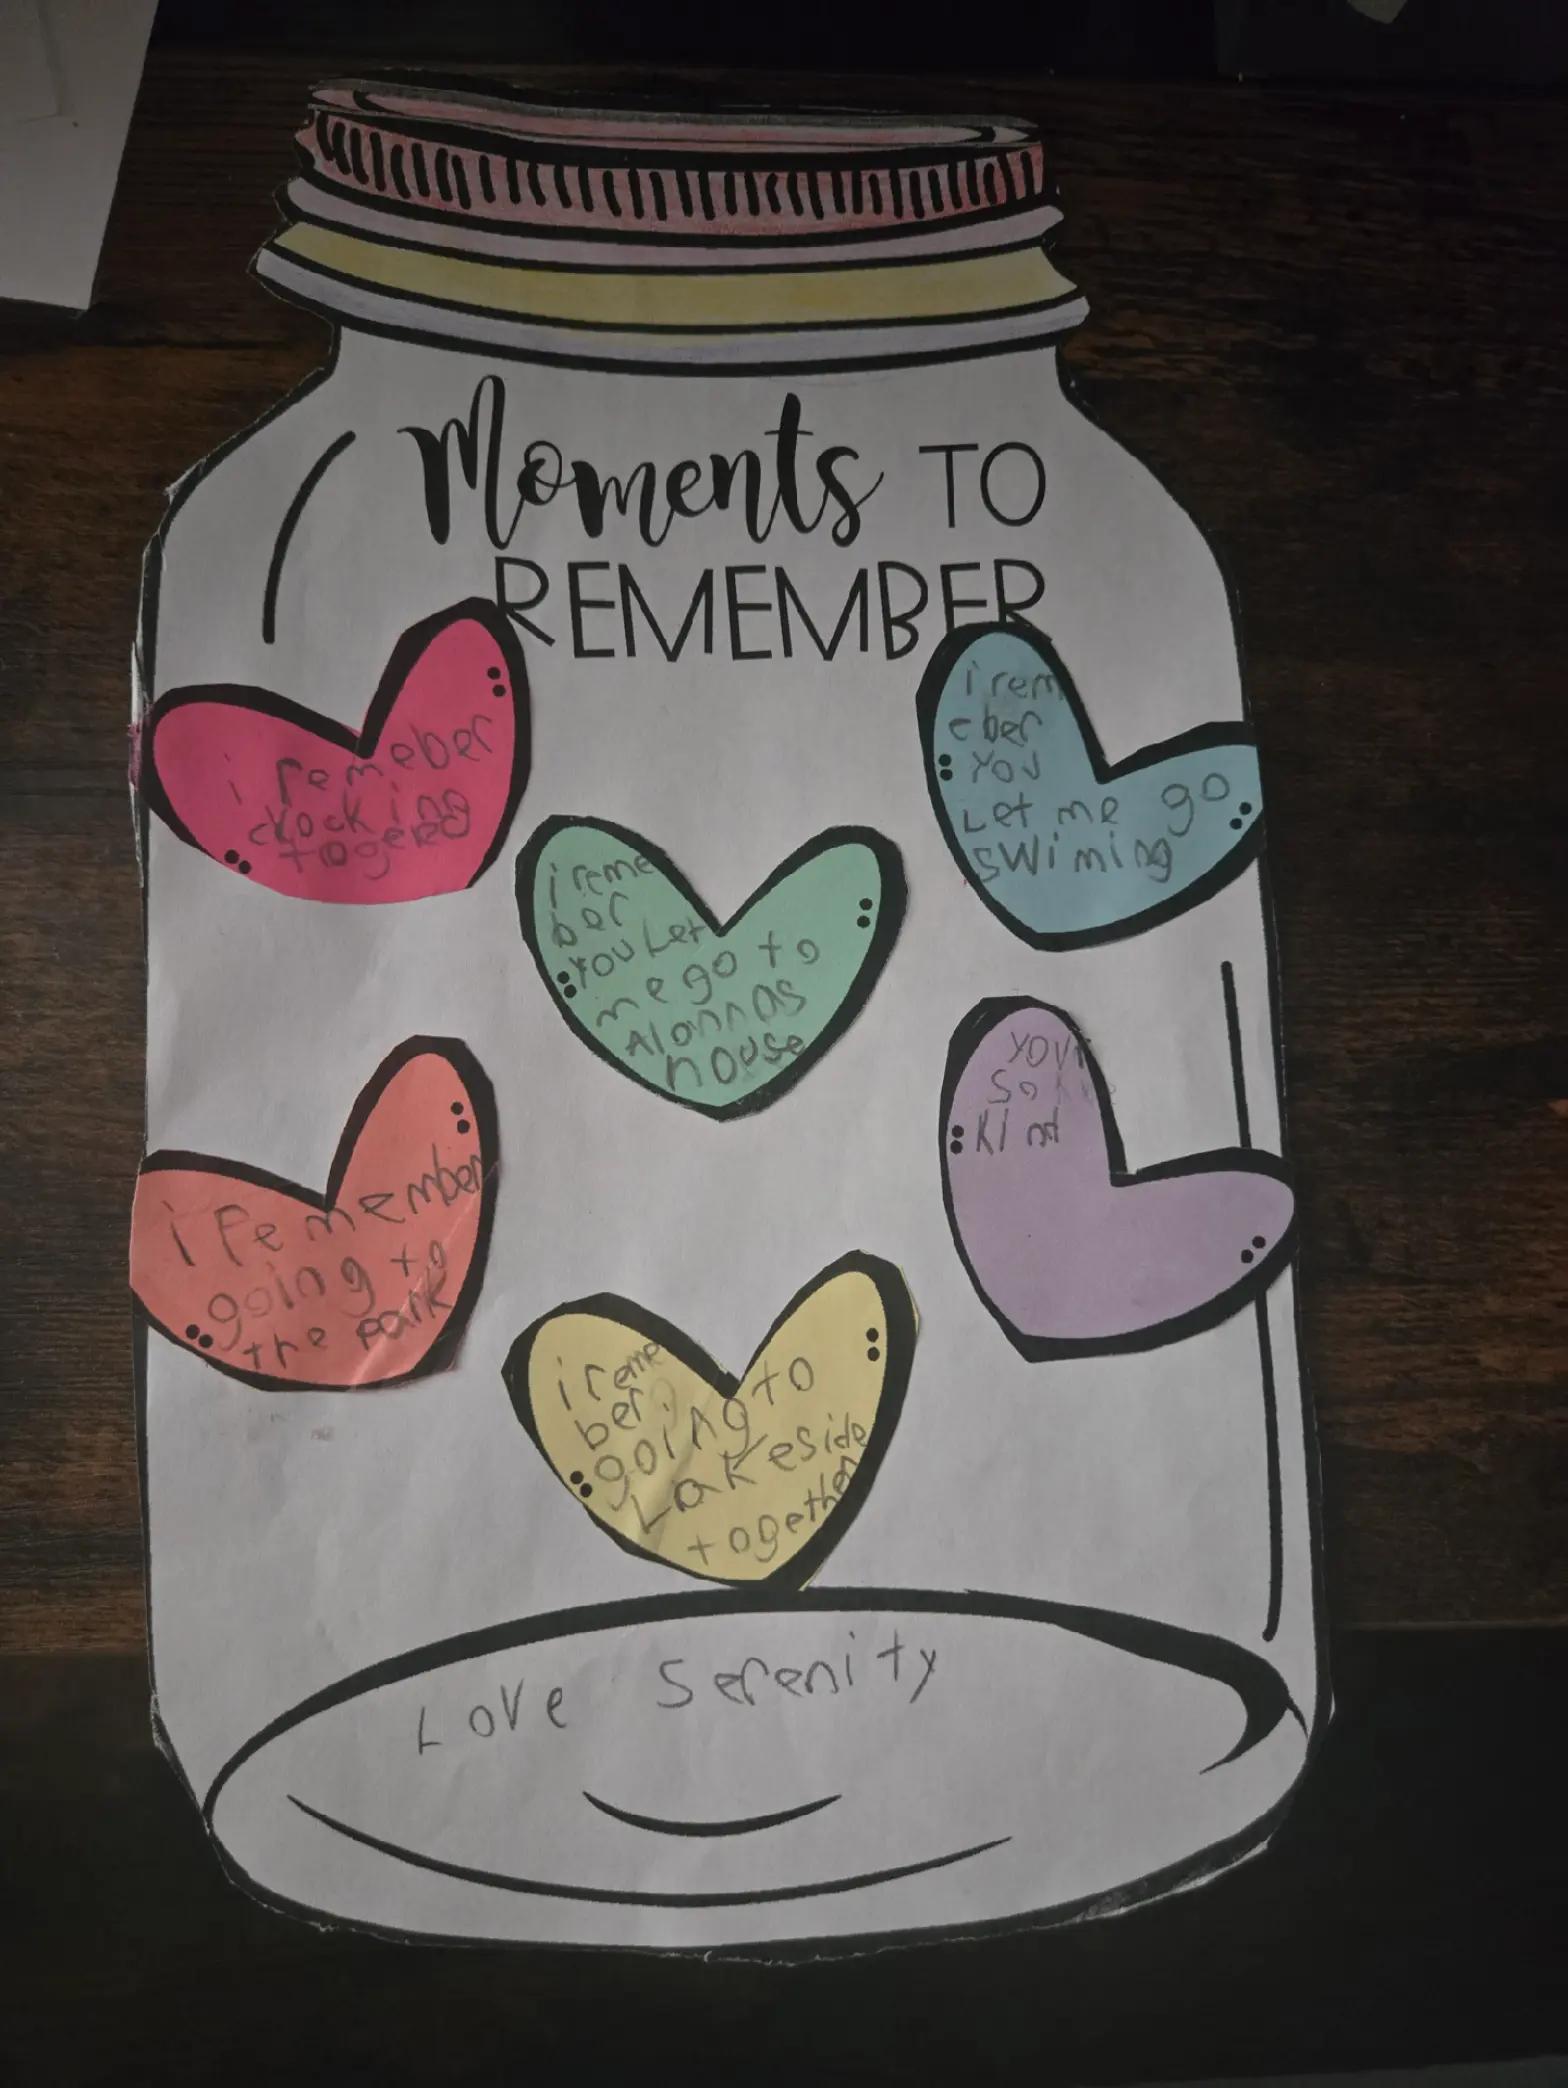 Moments TO
REMEMBER
i remeber
togered
i rem
eber
YOU
Let me go
swiming
i reme
ber
YOU Let
me go to
Alannas
house
your
so
kind
i remember
going to
the park
i reme
ber
going to
Lakeside
together
Love Serenity